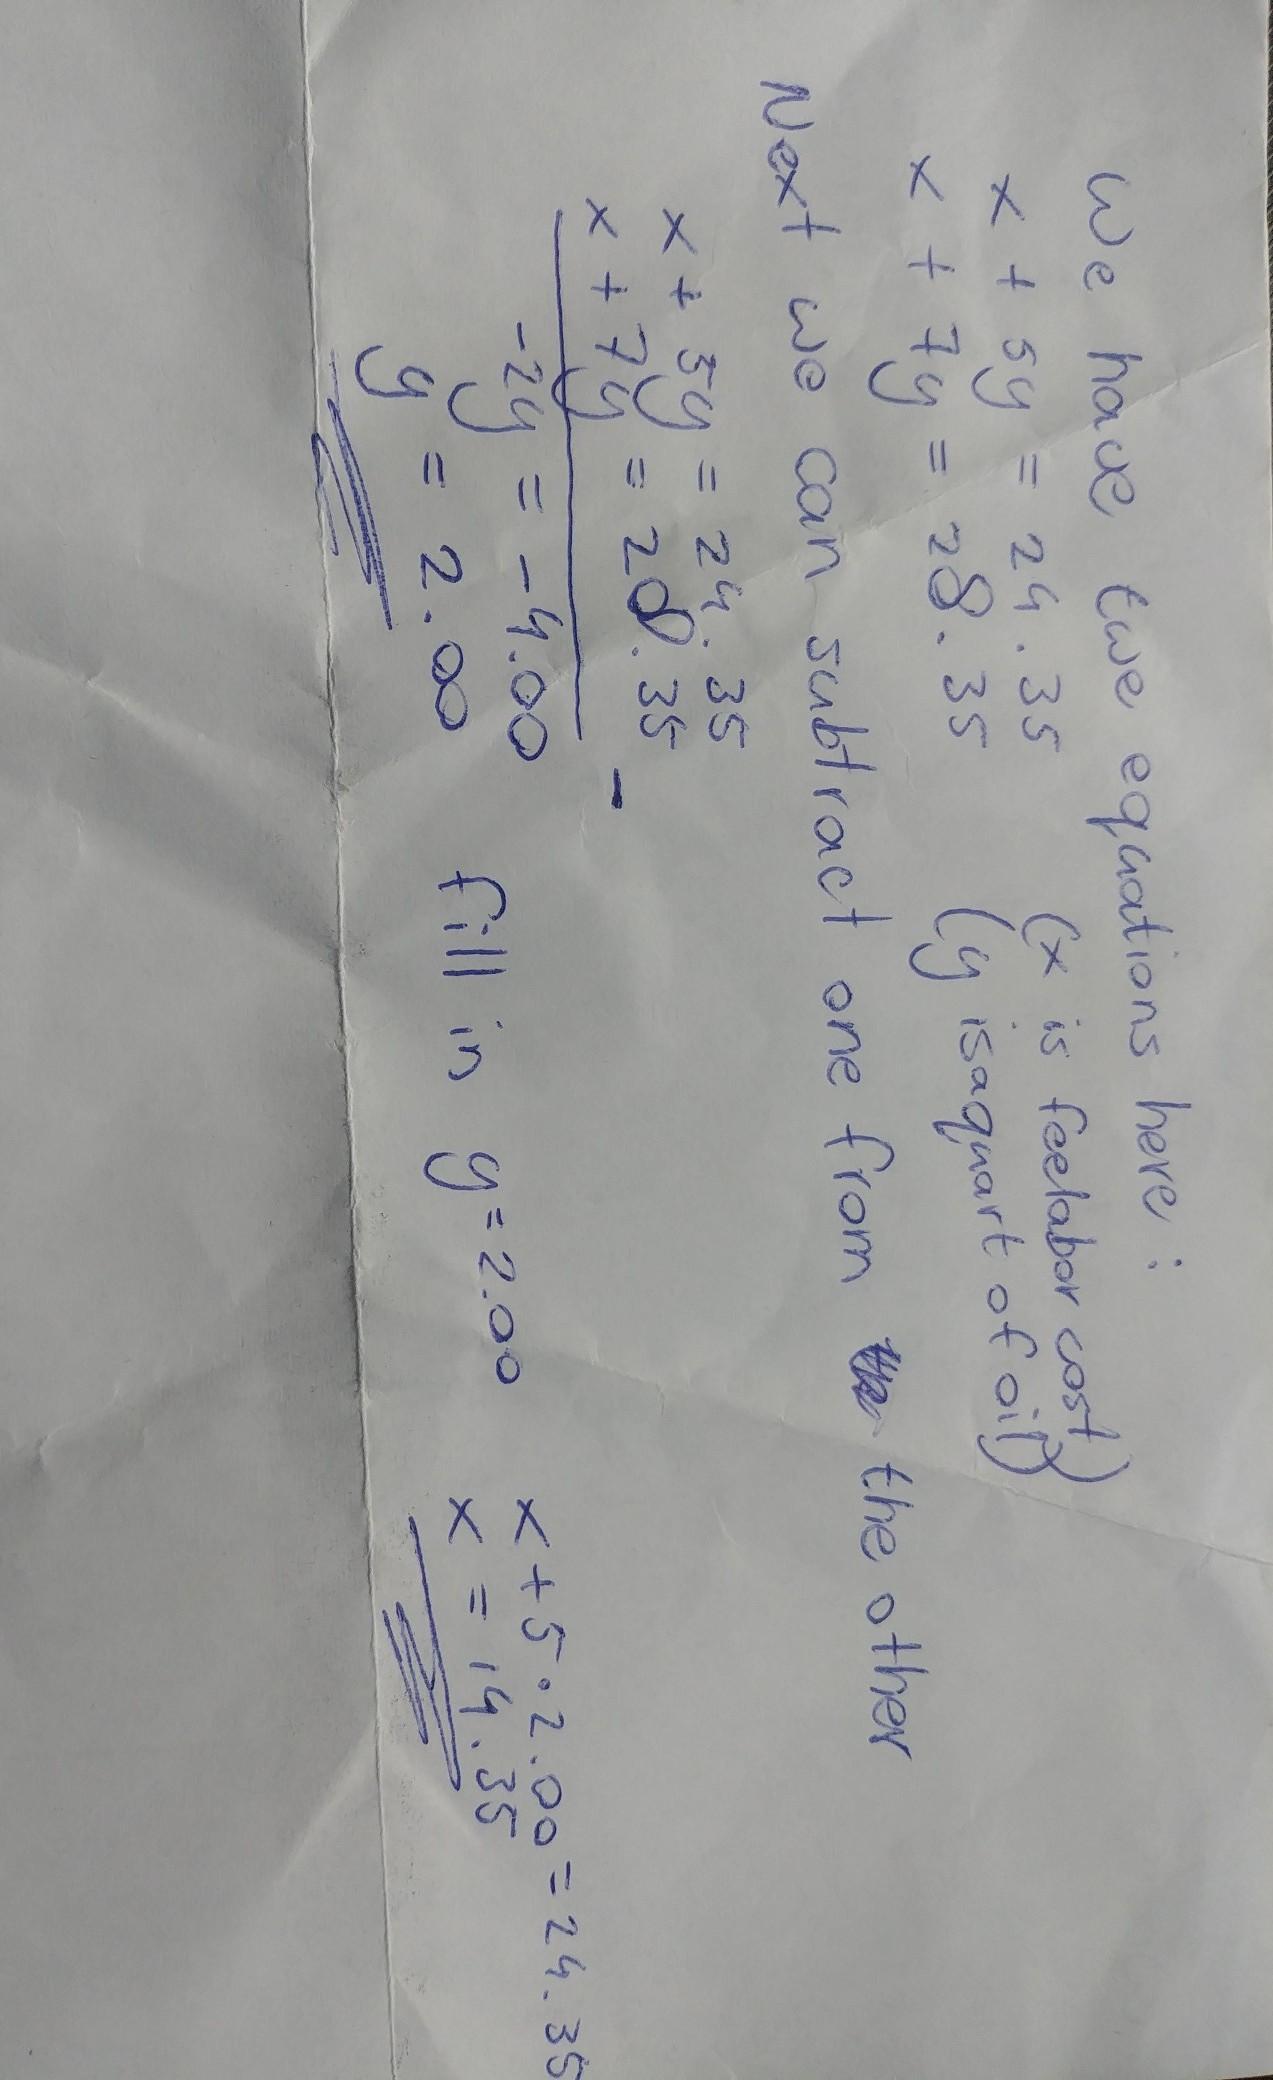 We have two equations here:
x + 5y = 24.35 (x is fee labor cost)
x + 7y = 28.35 (y is a quart of oil)
Next we can subtract one from the other
x + 5y = 24.35
x + 7y = 28.35 -
-2y = -4.00
y = 2.00
fill in y = 2.00
x + 5 · 2.00 = 24.35
x = 14.35